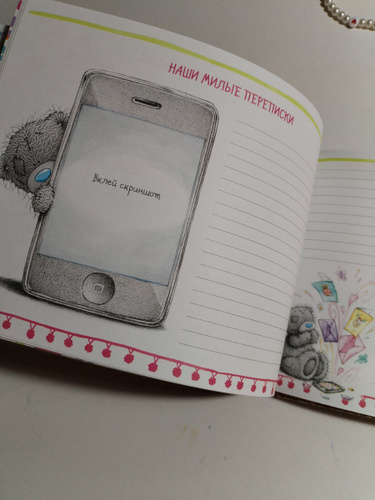 НАШИ МИЛЫЕ ПЕРЕПИСКИ
Вклей скриншот